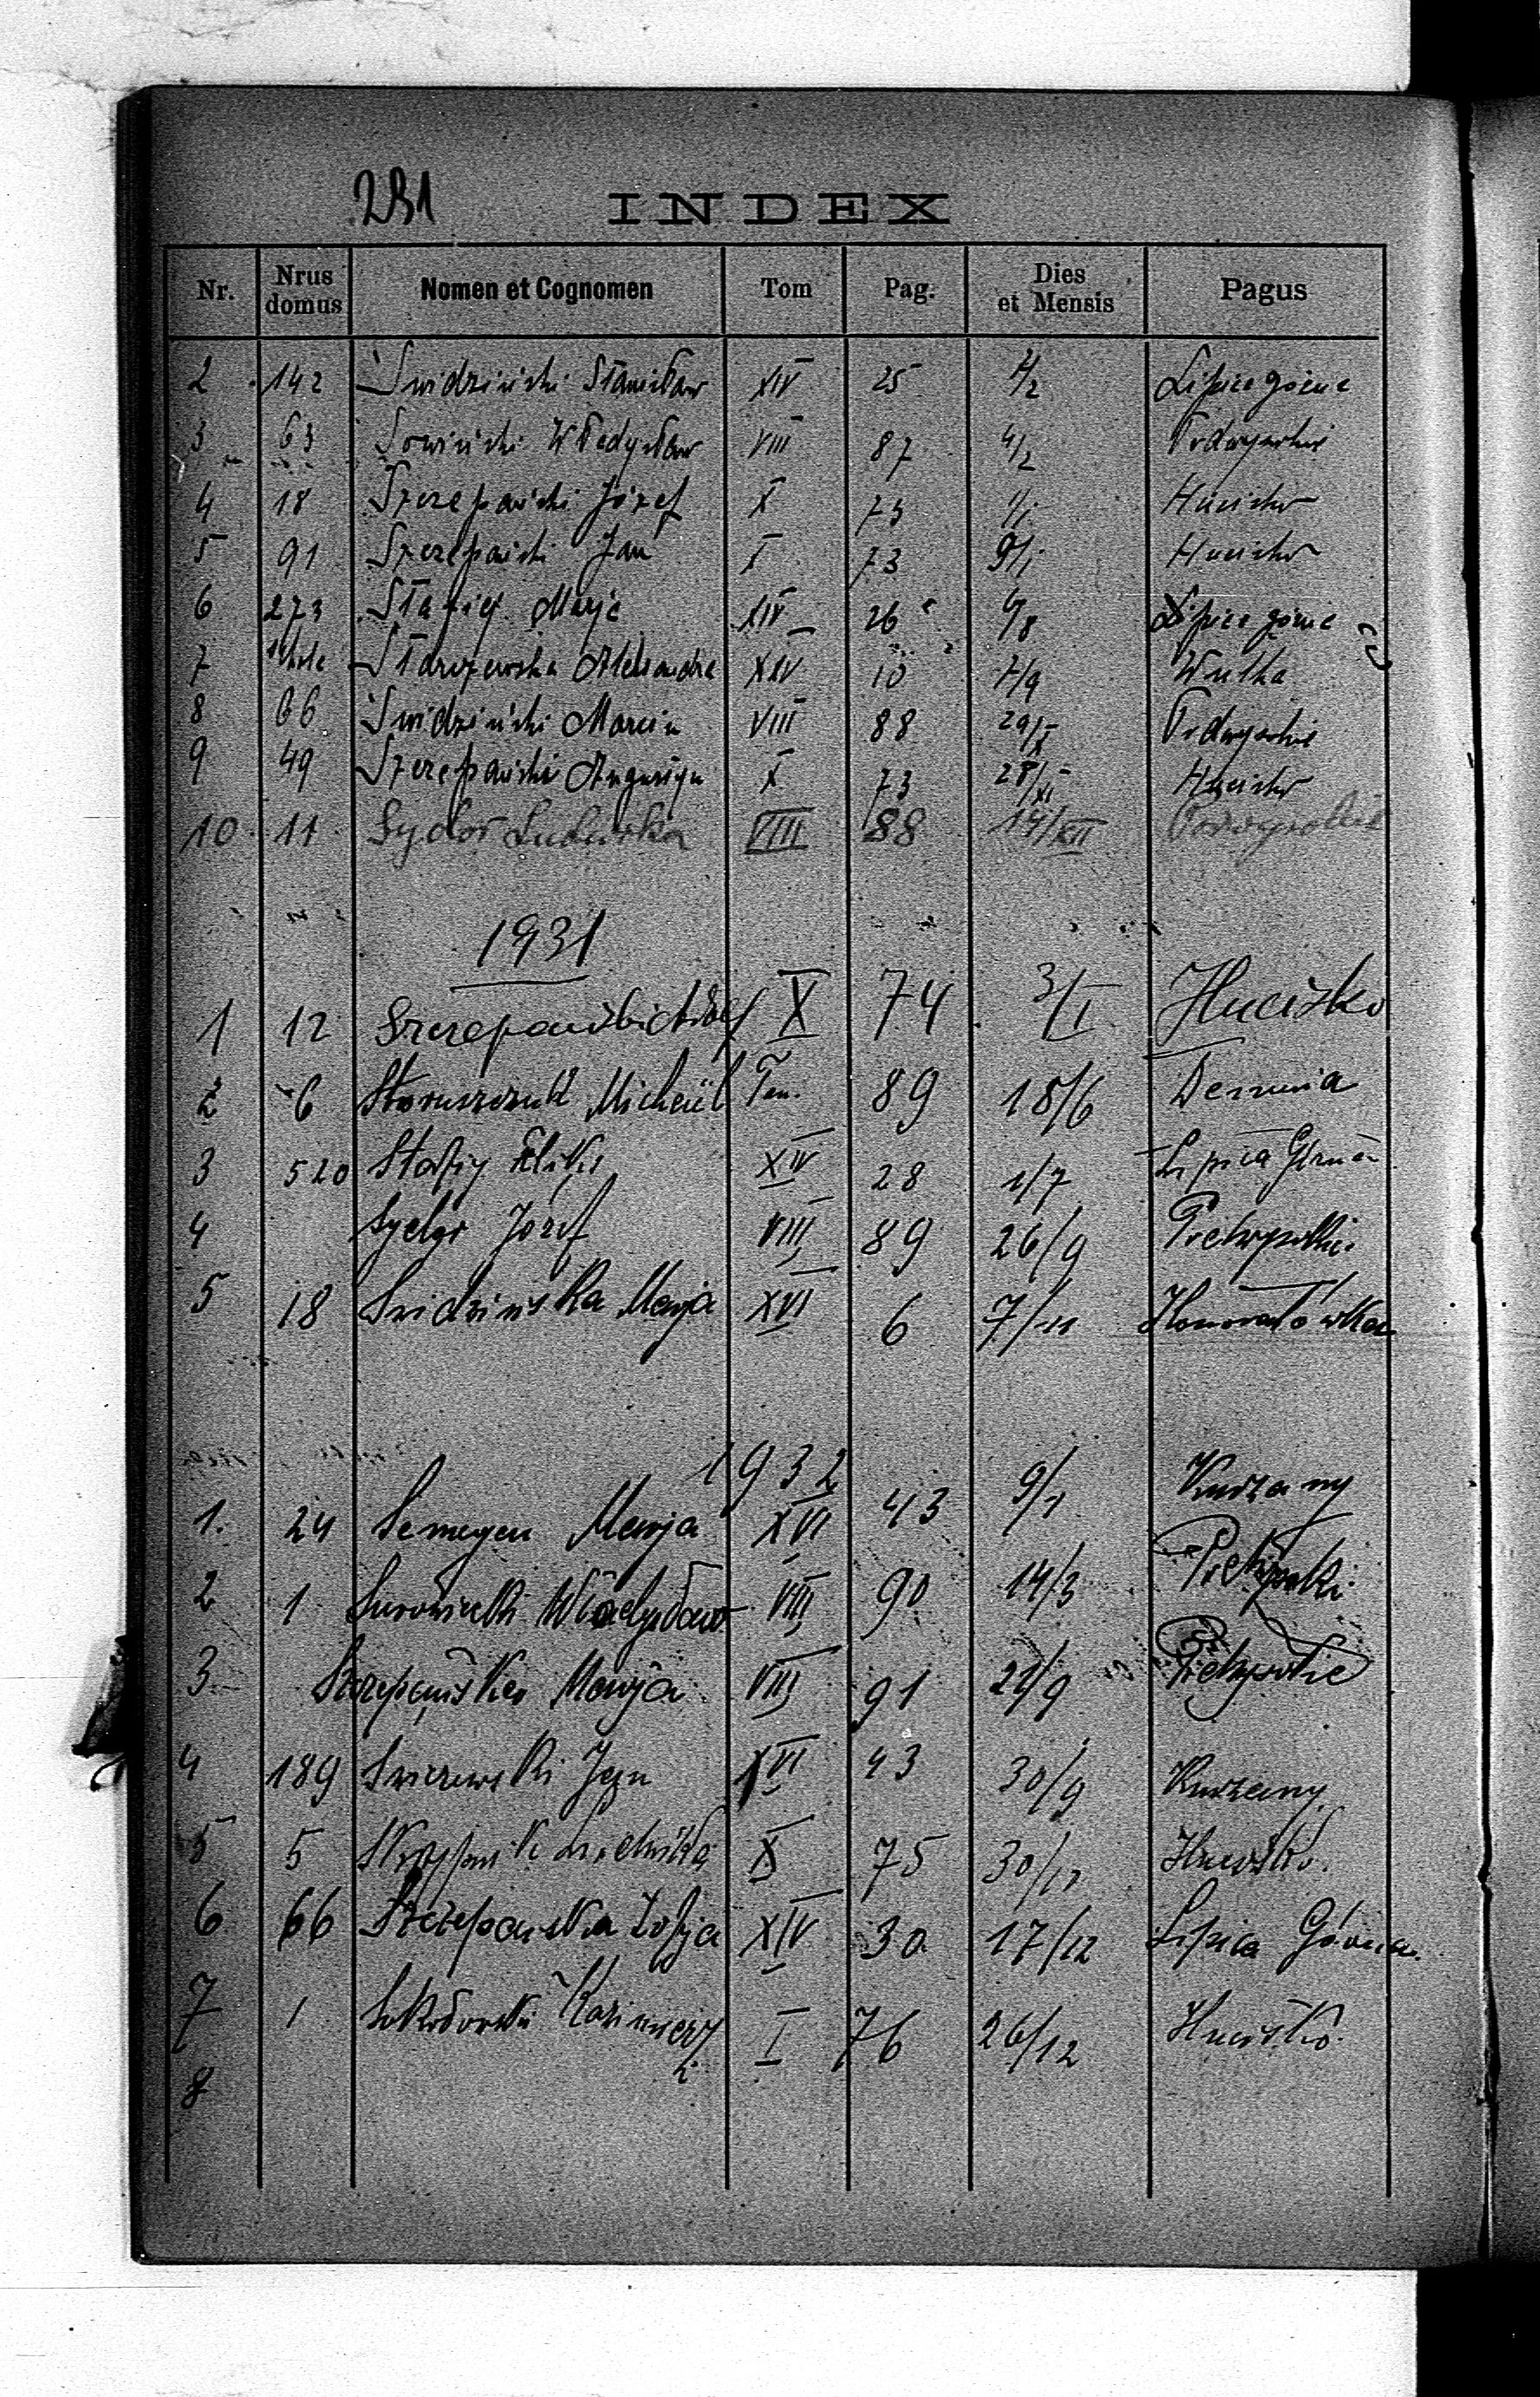 231
INDEX
Nr. Nrus domus Nomen et Cognomen Tom Pag. Dies et Mensis Pagus
2 142 Świdziński Stanisław XIV 25 2/2 Lipica górna
3 63 Sowiński Władysław VIII 87 4/2
4 18 Szczepański Józef X 73 Hucisko
5 91 Szczepański Jan X 73 9/1 Hucisko
6 273 Stafiej Marja XIV 26 6/8 Lipica górna
7 Starzewska Aleksandra XIV 10 7/9 Wulka
8 66 Świdziński Marcin VIII 88 29/X
9 49 Szczepański Augustyn X 73 28/XI Hucisko
10 11 Sydor Ludwika VIII 88 14/XII
1931
1 12 Szczepański Józef X 74 3/I Hucisko
2 6 Staruszczuk Michaił Tom. 89 18/6 Demnia
3 520 Stafiy XIV 28 1/7 Lipica Górna
4 Sydor Józef VIII 89 26/9
5 18 Swidzinska Marja XVI 6 7/11 Honoratówka
1932
1. 24 Semeyen Marja XVI 43 9/1 Kurzany
2 1 Władysław VIII 90 14/3
3 Szczepańska Marja VIII 91 21/9
4 189 Jan XVI 43 30/9 Kurzany
5 5 X 75 30/ Hucisko.
6 66 Szczepanska Zofja XIV 30 17/12 Lipica Górna
7 1 Sokołowski Kazimierz I 76 26/12 Hucisko.
8